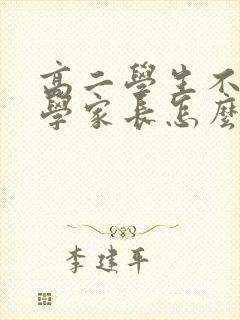 高二學生不
學家長怎麼
李建平